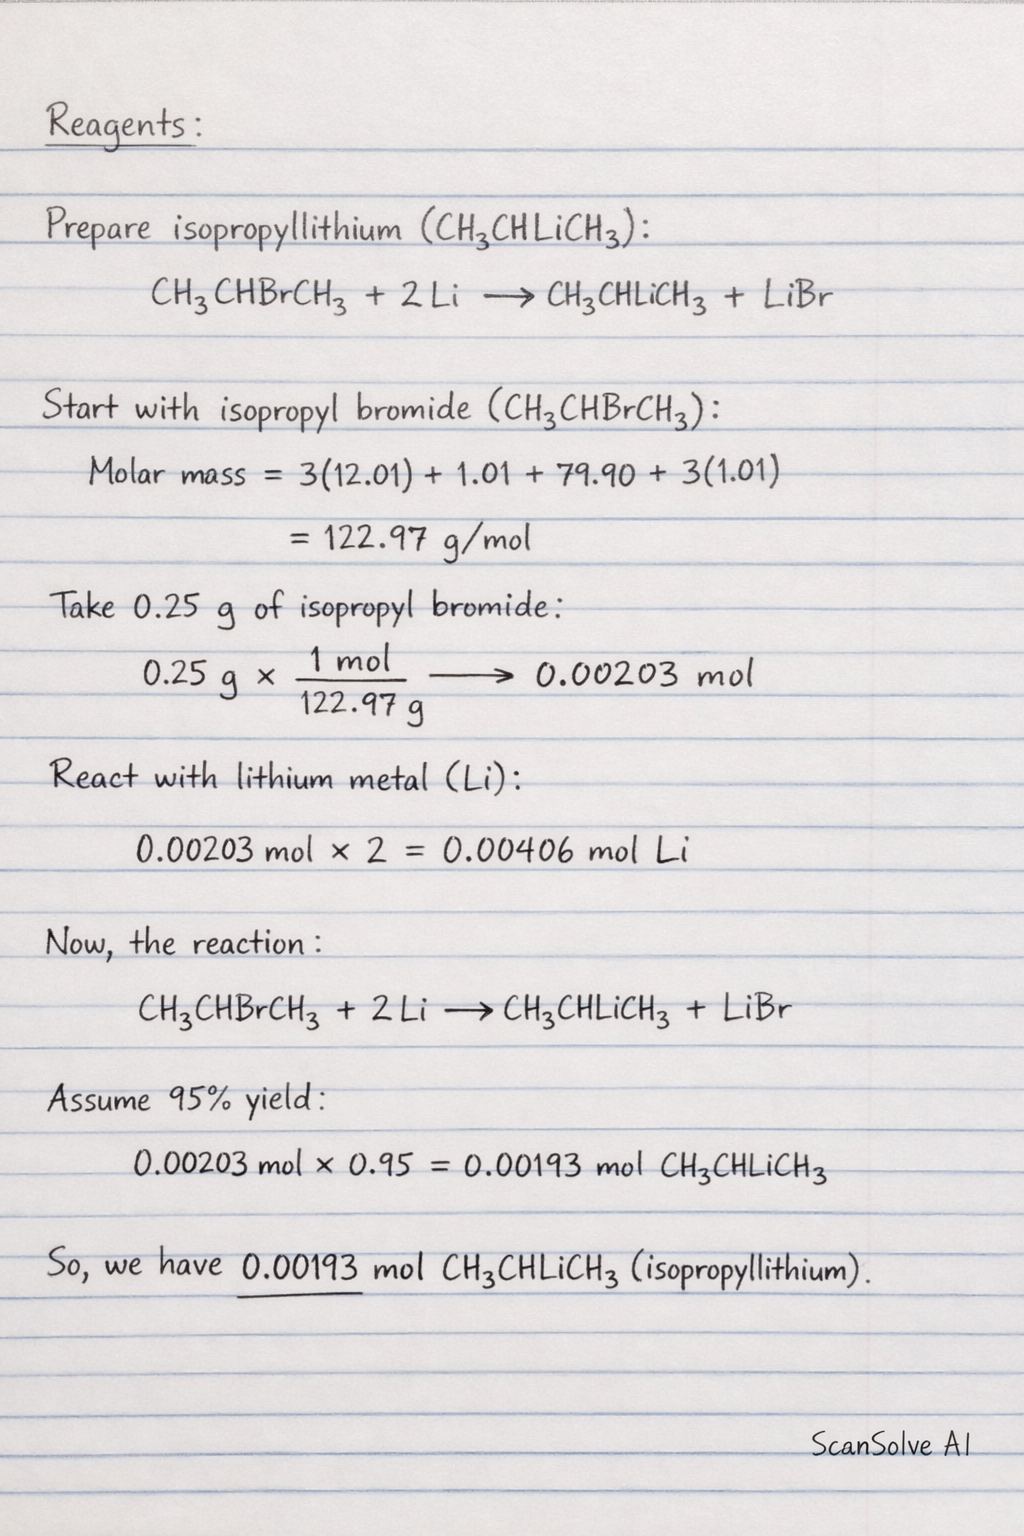 Reagents:
Prepare isopropyllithium (CH₃CHLiCH₃):
CH₃CHBrCH₃ + 2 Li ⟶ CH₃CHLiCH₃ + LiBr
Start with isopropyl bromide (CH₃CHBrCH₃):
Molar mass = 3(12.01) + 1.01 + 79.90 + 3(1.01)
= 122.97 g/mol
Take 0.25 g of isopropyl bromide:
0.25 g × 1 mol / 122.97 g ⟶ 0.00203 mol
React with lithium metal (Li):
0.00203 mol × 2 = 0.00406 mol Li
Now, the reaction:
CH₃CHBrCH₃ + 2 Li ⟶ CH₃CHLiCH₃ + LiBr
Assume 95% yield:
0.00203 mol × 0.95 = 0.00193 mol CH₃CHLiCH₃
So, we have 0.00193 mol CH₃CHLiCH₃ (isopropyllithium).
ScanSolve AI